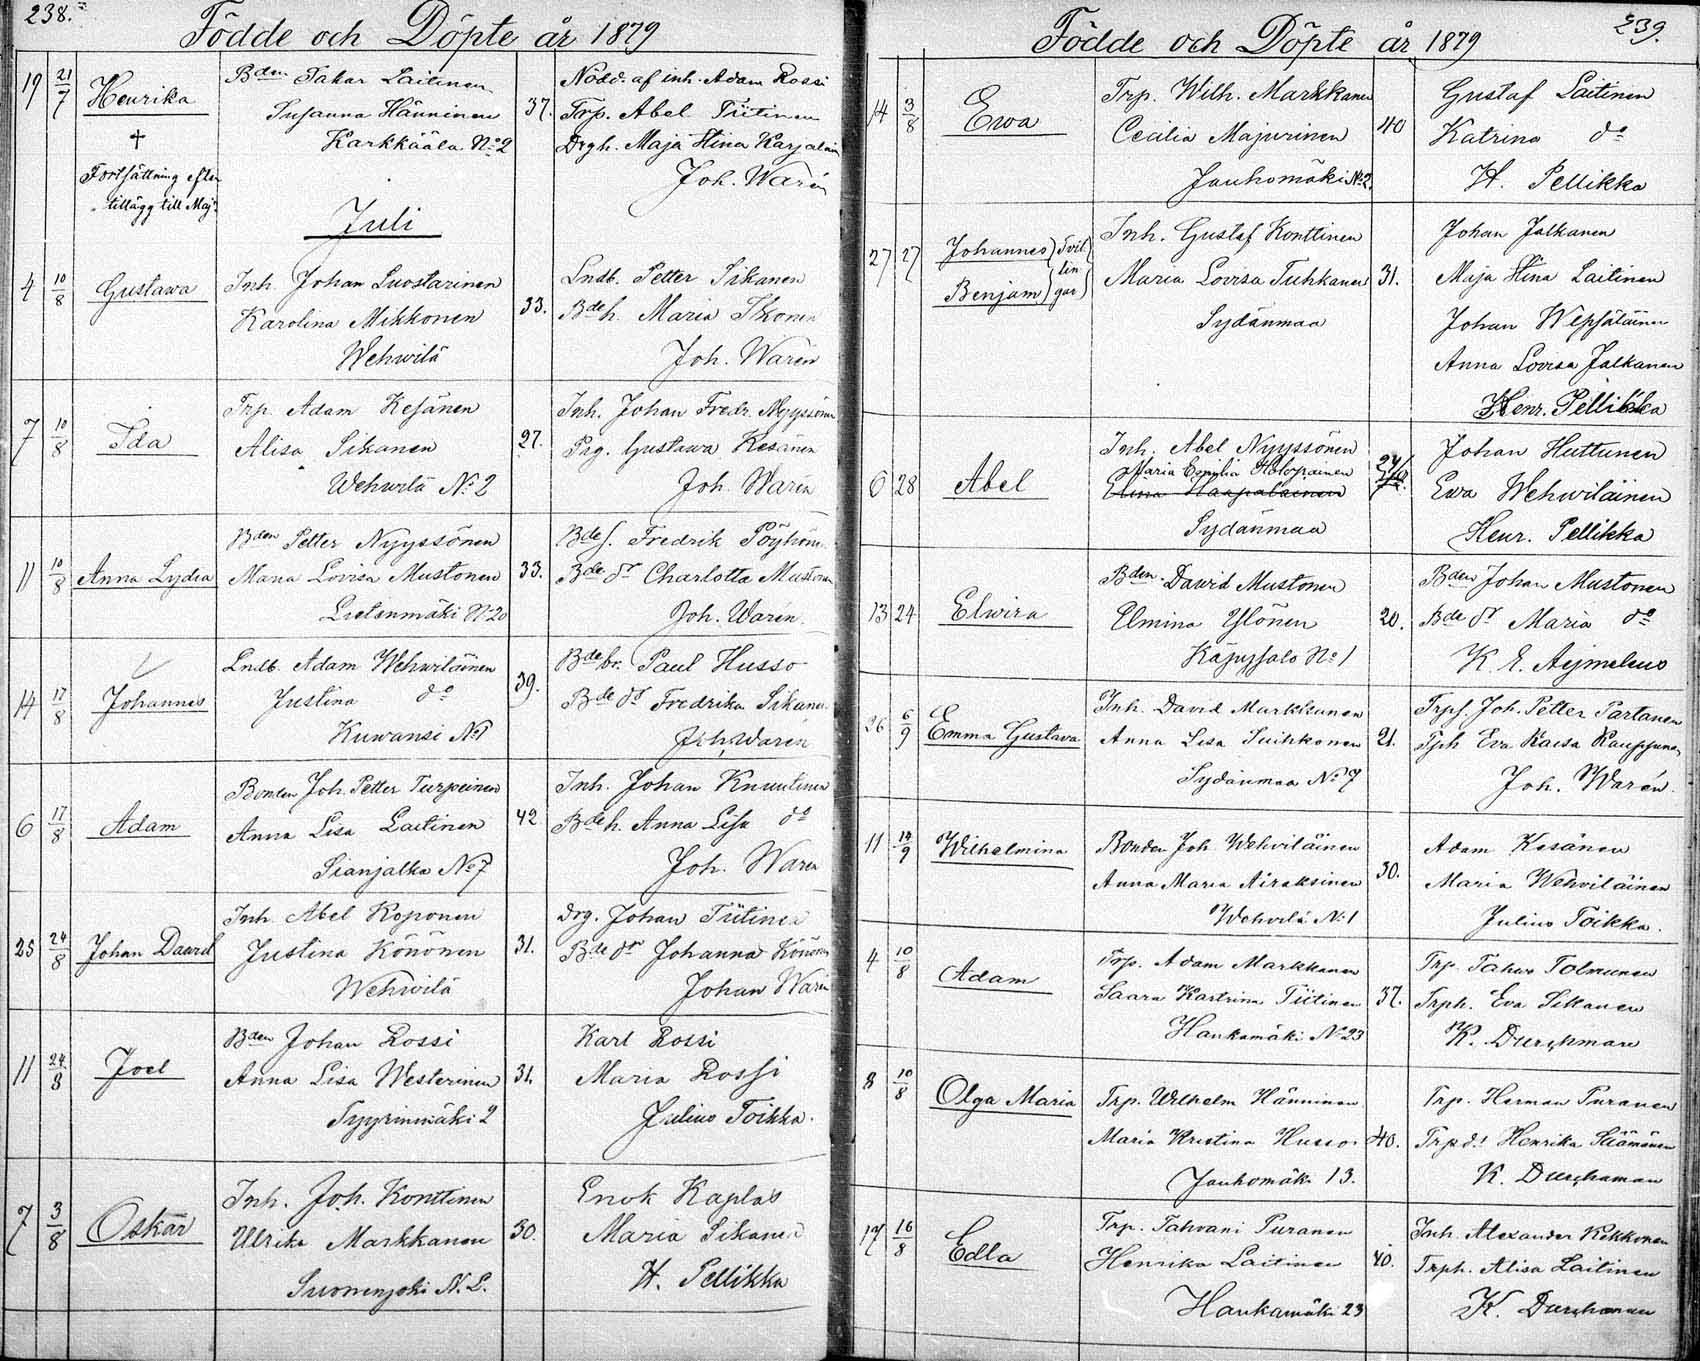 238.
Födde och Döpte år 1879
19 21/7 Henrika
†
Fortsättning efter
tillägg till Maj
Bden Taħar Laitinen
Susanna Hänninen 37.
Karkkääla No 2
Nödd. af inh. Adam Rossi
Trp. Abel Tiitinen
Drgh. Maja Stina Karjalain
Joh. Warén
Juli
4 10/8 Gustawa
Inh. Johan Luostarinen
Karolina Mikkonen 33.
Wehwilä
Lndb. Petter Sikanen
Bdeh. Maria Ikonen
Joh. Warén
7 10/8 Ida
Trp. Adam Kesänen
Alisa Sikanen 27.
Wehwilä No 2
Inh. Johan Fredr. Nyyssönen
Pig. Gustawa Kesänen
Joh. Warén
11 10/8 Anna Lydia
Bden Petter Nyyssönen
Maria Lovisa Mustonen 33.
Lietenmäki No 20
Bdes. Fredrik Pöyhönen
Bde dr Charlotta Mustonen
Joh. Warén.
14 17/8 Johannes
Lndb. Adam Wehwiläinen
Justina do 39.
Kuwansi No 1
Bdebr. Paul Husso
Bde dr Fredrika Sikanen
Joh. Warén
6 17/8 Adam
Bonden Joh. Petter Turpeinen
Anna Lisa Laitinen 42
Sianjalka No 7
Inh. Johan Knuutinen
Bdeh. Anna Lisa do
Joh. Warén
25 24/8 Johan Dawid
Inh. Abel Koponen
Justina Könönen 31.
Wehwilä
Drg. Johan Tiitinen
Bde dr Johanna Könönen
Johan Warén
11 24/8 Joel
Bden Johan Rossi
Anna Lisa Westerinen 31.
Syyrinmäki 2
Karl Rossi
Maria Rossi
Julius Toikka.
7 3/8 Oskar
Inh. Joh. Konttinen
Ulrika Markkanen 30.
Suonenjoki N. 2.
Enok Kaplas
Maria Sikanen
H. Pellikka
239.
Födde och Döpte år 1879
14 3/8 Ewa
Trp. Wilh. Markkanen
Cecilia Majurinen 40
Jauhomäki No 2.
Gustaf Laitinen
Katrina do
H. Pellikka
27 27 Johannes
Benjam
Tvil
lin
gar
Inh. Gustaf Konttinen
Maria Lovisa Tuhkanen 31.
Sydänmaa
Johan Jalkanen
Maja Stina Laitinen
Johan Wepsäläinen
Anna Lovisa Jalkanen
Henr. Pellikka
6 28 Abel
Inh. Abel Nyyssönen
Maria Emilia Holopainen
Elina Haapalainen
Sydänmaa
Johan Huttunen
Ewa Wehwiläinen
Henr. Pellikka
13 24 Elwira
Bden. Dawid Mustonen
Elmina Ylönen 20.
Käpysalo No 1
Bden Johan Mustonen
Bde dr Maria do
K. E. Aejmeleus
26 6/9 Emma Gustava
Inh. David Markkanen
Anna Lisa Suihkonen 21.
Sydänmaa No 7
Trps. Joh. Petter Partanen
Tph Eva Kaisa Kauppinen
Joh. Warén.
11 14/9 Wilhelmina
Bonden Joh Wehviläinen
Anna Maria Airaksinen 30.
Wehvilä No 1
Adam Kesänen
Maria Wehviläinen
Julius Toikka.
4 10/8 Adam
Trp. Adam Markkanen
Saara Kartrina Tiitinen 37.
Haukamäki No 23
Trp. Tahvo Tolvunen
Trph. Eva Sikanen
K. Durchman
8 10/8 Olga Maria
Trp. Wilhelm Hänninen
Maria Kristina Husso 40.
Jauhomäki 13.
Trp. Herman Puranen
Trpd. Henrika Säämänen
K. Durchman
17 16/8 Edla
Trp. Tahvani Puranen
Henrika Laitinen 40.
Haukamäki 23
Inh. Alexander Kekkonen
Trph. Alisa Laitinen
K. Durchman